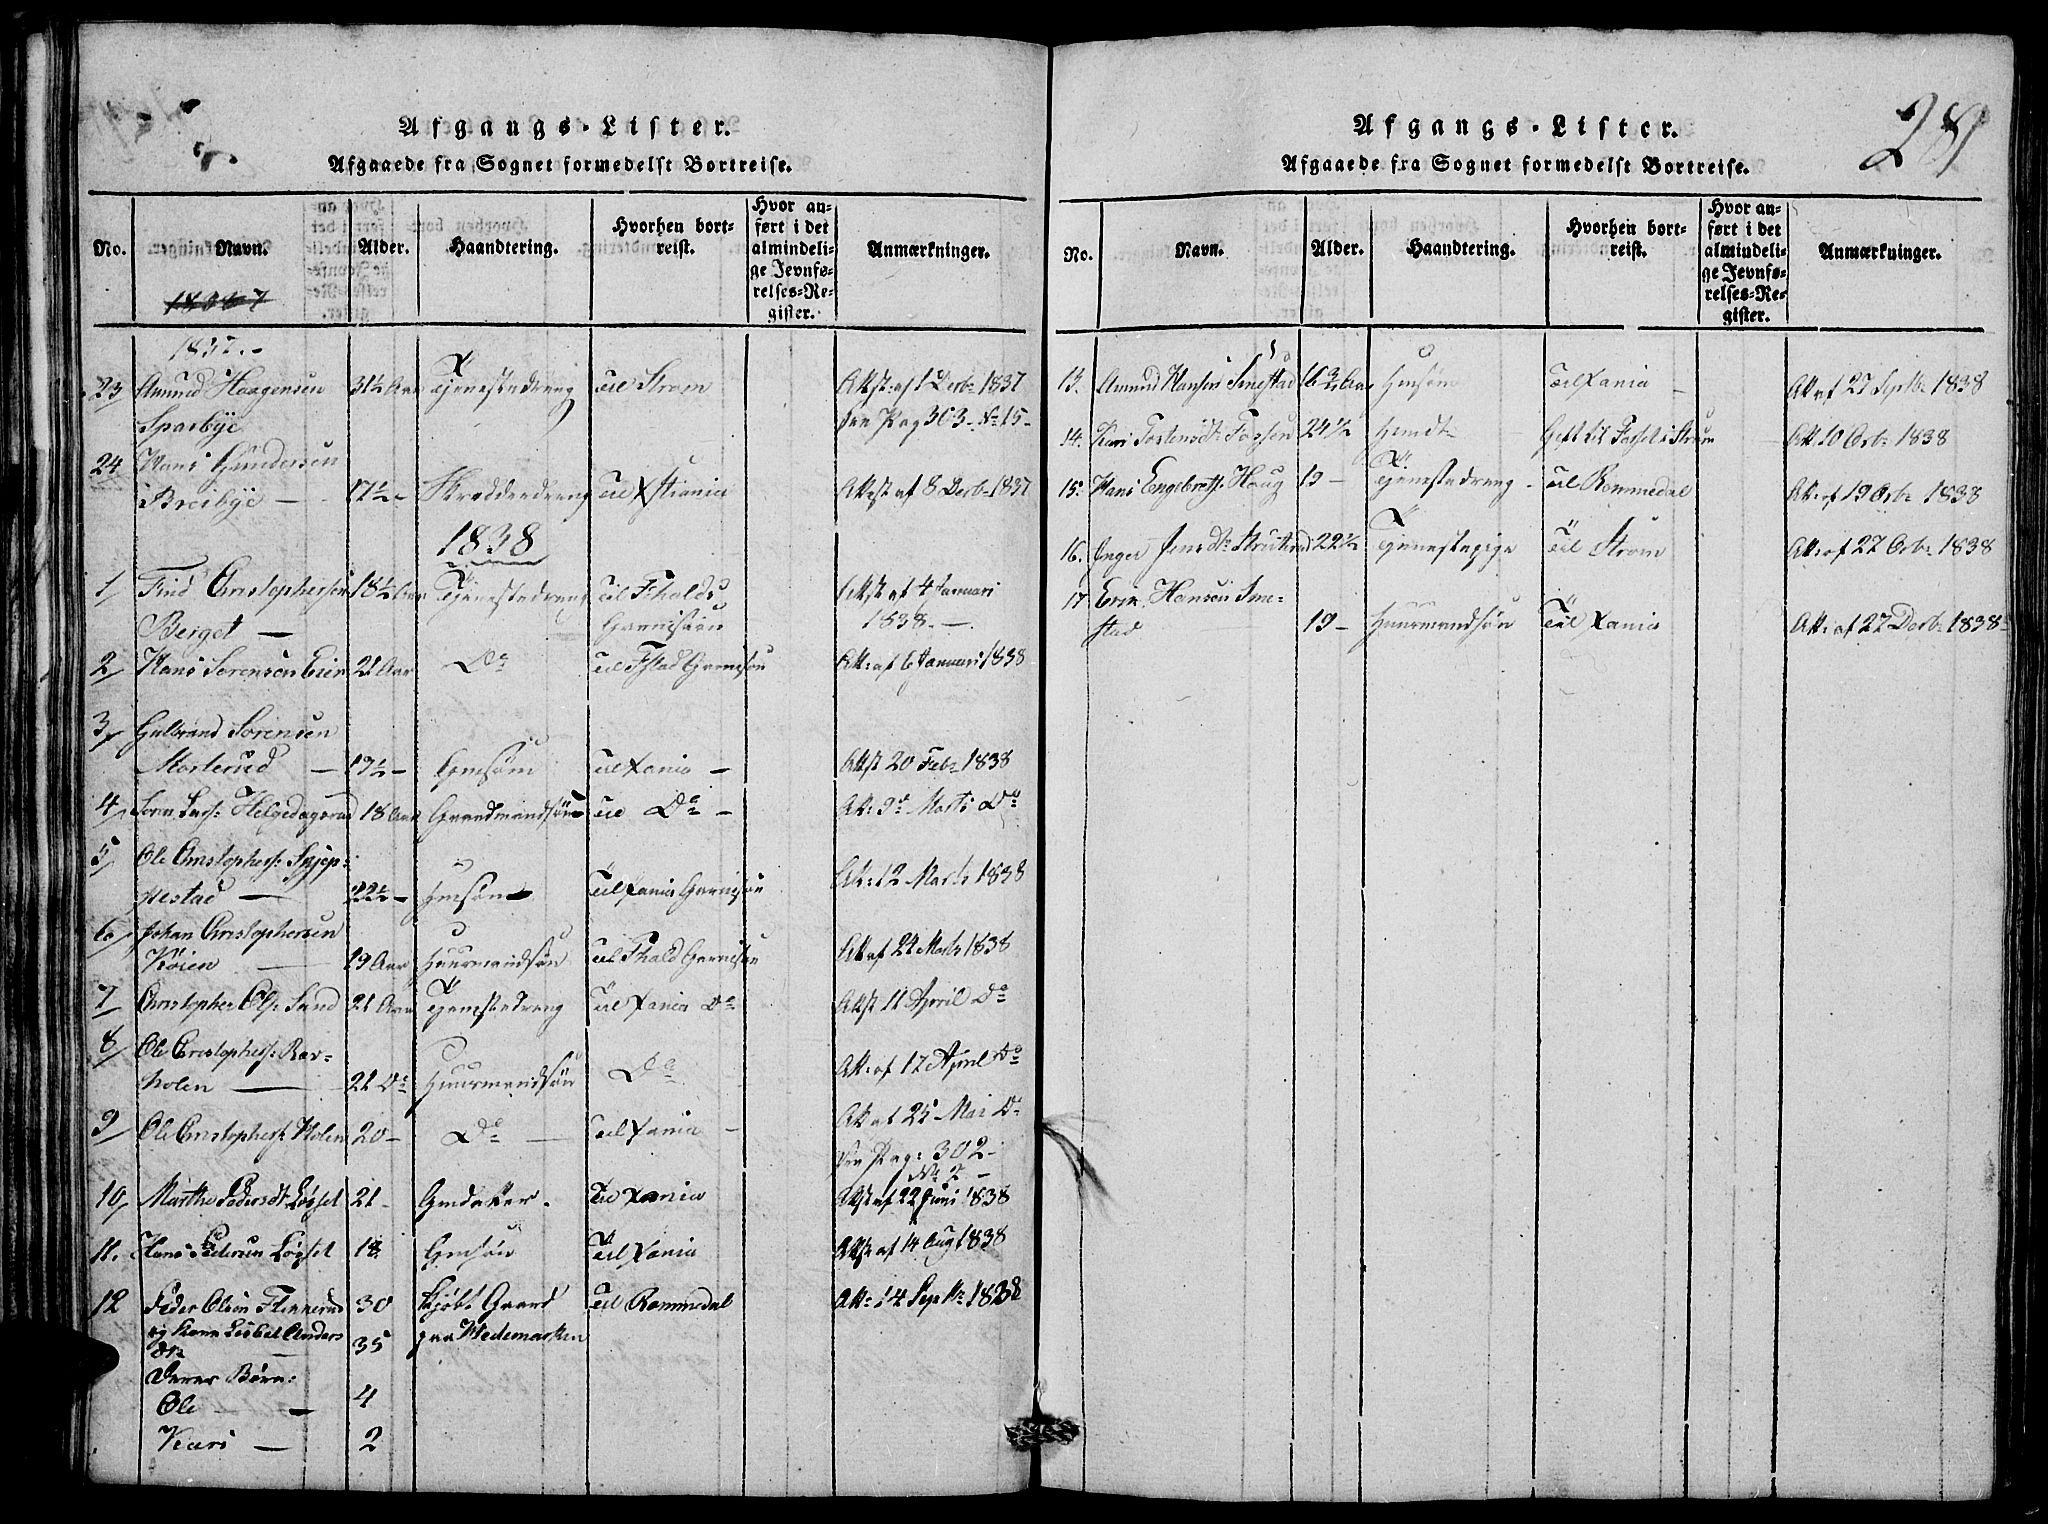 Afgangs-Lister.
Afgaaede fra Sognet formedelst Bortreise.
No. Navn. Alder. Haandtering. Hvorhen bortreist. Hvor anført i det almindelige Jevnførelses-Register. Anmærkninger.
1837.-
23 Amund Haagensen 31½ Aar Tjenestedreng Til Strøm Attst: af 1 Decbr 1837
Sparbye see Pag 303 No 15-
24 Hans Gundersen
Breibye — 17½ - Skrædderdreng Til Xstiania Attest af 8 Decbr 1837
1838
1/ Find Christophersen 18½ Aar Tjenestedreng Til Fhalds Attst af 4 Januari
Berget — Garnison 1838. —
2/ Hans Sørensen Eier 21 Aar Do Til Fstad Garnison Att: af 6 Januari 1838
3/ Gulbrand Sørensen
Morterud — 19½ - Gmsøn Til Xania — Attst 20 Febr 1838
4/ Søren Larss: Helgedagsrud 18 Aar Gaardmandsøn Til Do — At: 9de Marts Do
5/ Ole Christophers: Skjep-
pestad — 22½ - Hmsøn Til Xania Garnison At: 12 Marts 1838
6/ Johan Christophersen
Køien — 19 Aar Huusmandsøn Til Fhald Garnison At af 24 Marts 1838
7/ Christopher Ols: Sand 21 Aar Tjenestedreng Til Xania Do Attst 11 April Do
8/ Ole Christophers: Rav-
holen — 21 Do Huusmandsøn Do Att: af 17 April Do
9/ Ole Christophers: Holen 20 - Do — Til Xania - Att af 25 Mai Do
see Pag: 302-
No 2 -
10/ Marthe Pedersdt Løgset 21 - Gmdatter. Til Xania Attst af 22 Juni 1838
11. Hans Pedersen Løgset 18 Gmsøn Til Xania Attst af 14 Aug 1838
12 Peder Olsen Finnerud 30 Kjøbt Gaard Til Rommedal Att: 14 Septbr 1838
og Kone Lisbet Anders 35 paa Hedemarken
dtr
Deres Børn:
Ole — 4
Kari — 2
Afgangs-Lister.
281
Afgaaede fra Sognet formedelst Bortreise.
No. Navn. Alder. Haandtering. Hvorhen bortreist. Hvor anført i det almindelige Jevnførelses-Register. Anmærkninger.
13. Amund Hansen Smestad 16¾ Aar Hmsøn Til Xania — Att af 27 Septbr 1838
14. Kari Tostensdt: Fossen 24½ Hmdt- Gift til i Strøm Att 10 Octbr 1838
15. Hans Engebrets: Haug 19 — Tjenestedreng - Til Rommedal Att: af 19 Octbr 1838
16. Inger Jensdtr Strutrud 22½ Tjenestepige Til Strøm Att: af 27 Octbr 1838
17 Erik Hansen Sme-
stad 19 - Huusmandsøn Til Xania Att: af 27 Decbr 1838